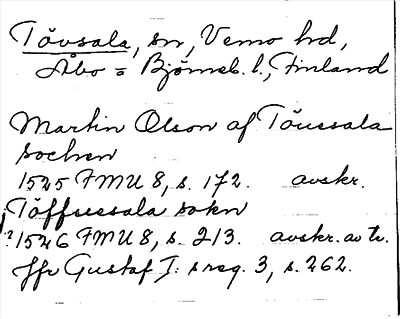 Tövsala, sn, Vemo hrd,
Åbo = Björneb. l., Finland
Martin Olson af Töussala
sochen
1525 FMU 8, s. 172. avskr.
Töffuesala sokn
?1526 FMU 8, s. 213. avskr. av tr.
Jfr Gustaf I: s reg. 3, s. 262.